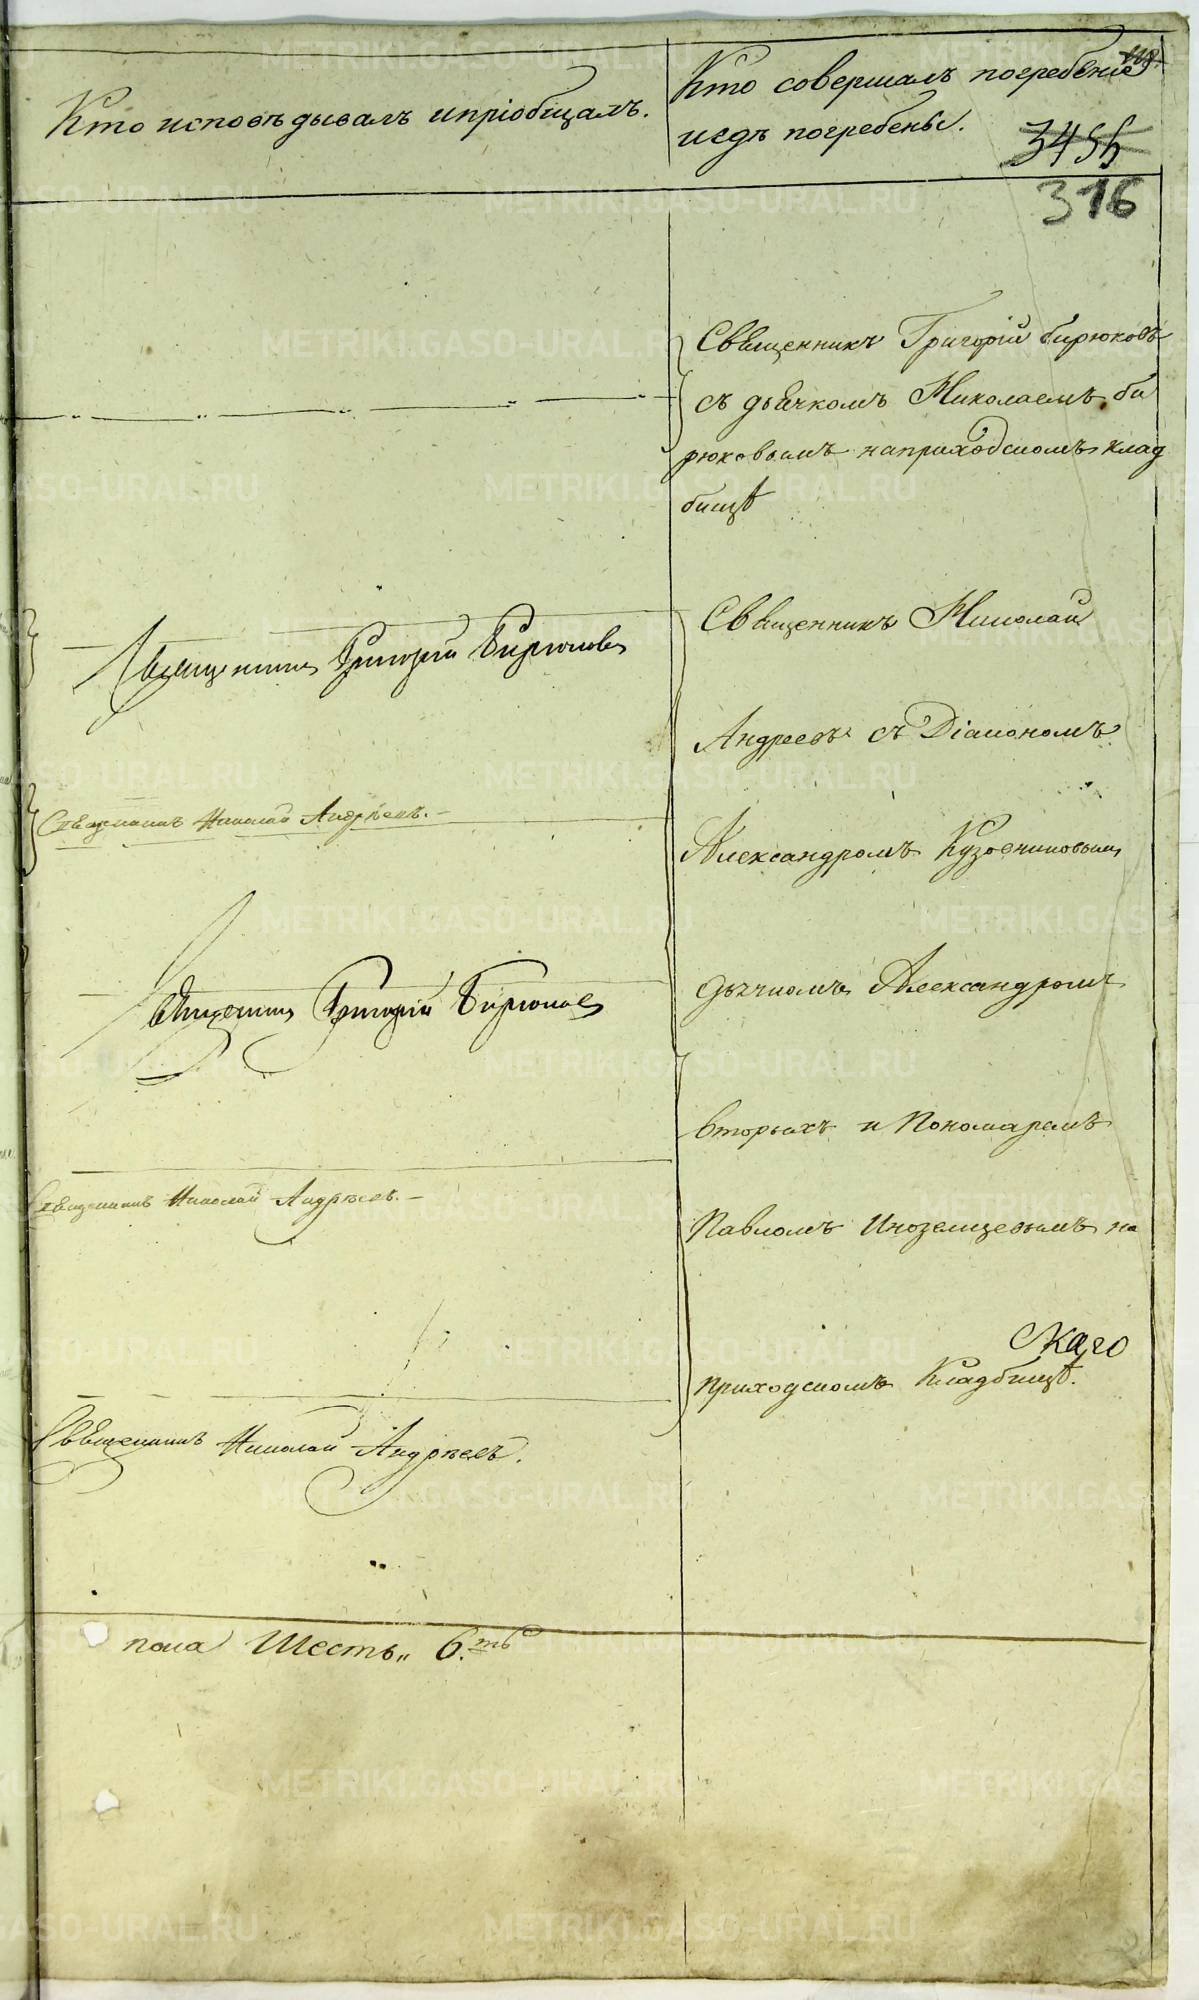 Кто исповѣдывалъ и пріобщалъ.
Кто совершалъ погребеніе
и гдѣ погребены.
345
316
Священникъ Григорій Бирюковъ
съ дьячкомъ Николаемъ Би
рюковымъ на приходскомъ клад
бищѣ
Священникъ Григорій Бирюковъ
Священникъ Николай Андрѣевъ.
Священникъ Григорій Бирюковъ
Священникъ Николай Андрѣевъ.
Священникъ Николай Андрѣевъ.
Священникъ Николай
Андреевъ съ Діакономъ
Александромъ Кузовниковымъ
дьячкомъ Александромъ
вторыхъ и Пономаремъ
Павломъ Иноземцевымъ на
приходскомъ Кладбищѣ.
скаго
пола Шесть„ 6.ть
METRIKI.GASO-URAL.RU